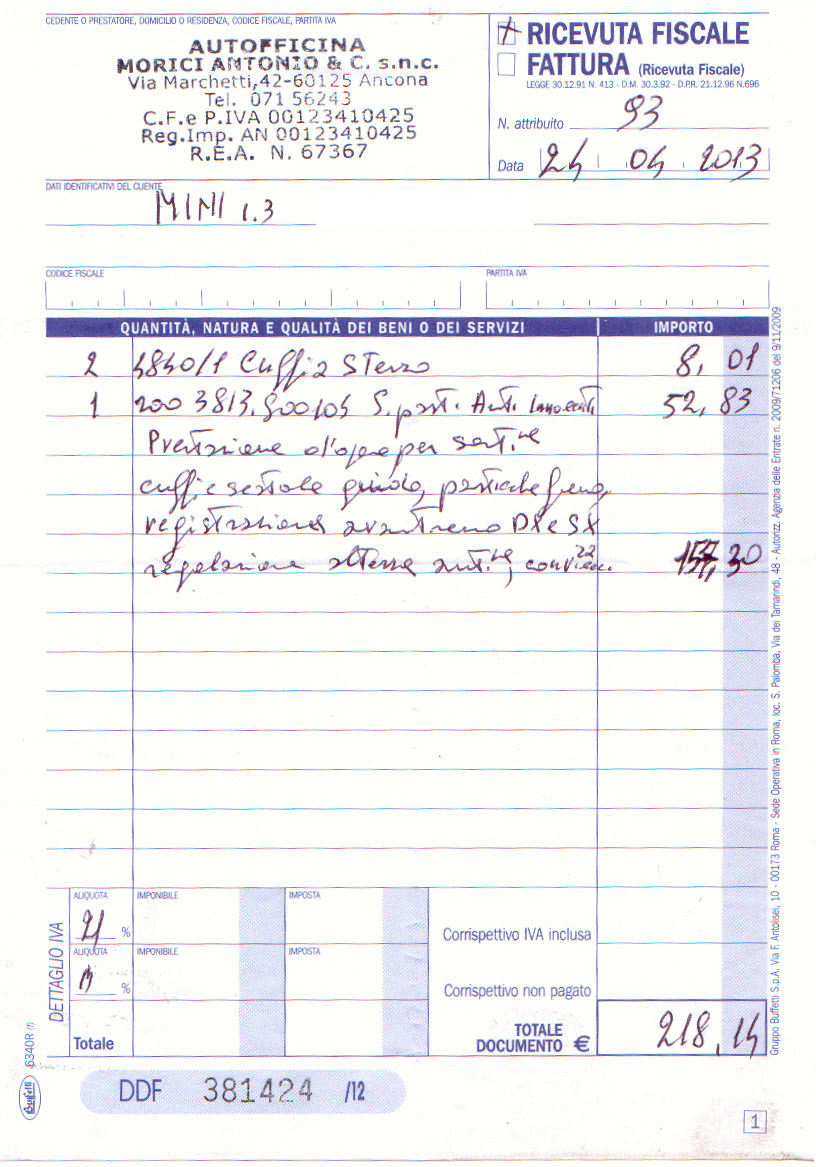 CEDENTE O PRESTATORE, DOMICILIO O RESIDENZA, CODICE FISCALE, PARTITA IVA
AUTOFFICINA
MORICI ANTONIO & C. s.n.c.
Via Marchetti,42-60125 Ancona
Tel. 071 56243
C.F.e P.IVA 00123410425
Reg.Imp. AN 00123410425
R.E.A. N. 67367
RICEVUTA FISCALE
FATTURA (Ricevuta Fiscale)
LEGGE 30.12.91 N. 413 - D.M. 30.3.92 - D.P.R. 21.12.96 N.696
N. attribuito 93
Data 24 04 2013
DATI IDENTIFICATIVI DEL CLIENTE
MINI 1.3
CODICE FISCALE
PARTITA IVA
QUANTITÀ, NATURA E QUALITÀ DEI BENI O DEI SERVIZI IMPORTO
2 4840/1 Cuffia Sterzo 8,01
1 200 3813. 52,83
Prestazione d'opera per
cuffie scatola guida, pasticche freno,
registrazione avantreno DX e SX
regolazione altezza 157,30
DETTAGLIO IVA
ALIQUOTA IMPONIBILE IMPOSTA
21 %
Corrispettivo IVA inclusa
ALIQUOTA IMPONIBILE IMPOSTA
%
Corrispettivo non pagato
Totale
TOTALE DOCUMENTO € 218,14
6340R (f)
Buffetti
DDF 381424 /12
1
Gruppo Buffetti S.p.A. Via F. Antolisei, 10 - 00173 Roma - Sede Operativa in Roma, loc. S. Palomba, Via dei Tamarindi, 48 - Autorizz. Agenzia delle Entrate n. 2009/71206 del 9/11/2009